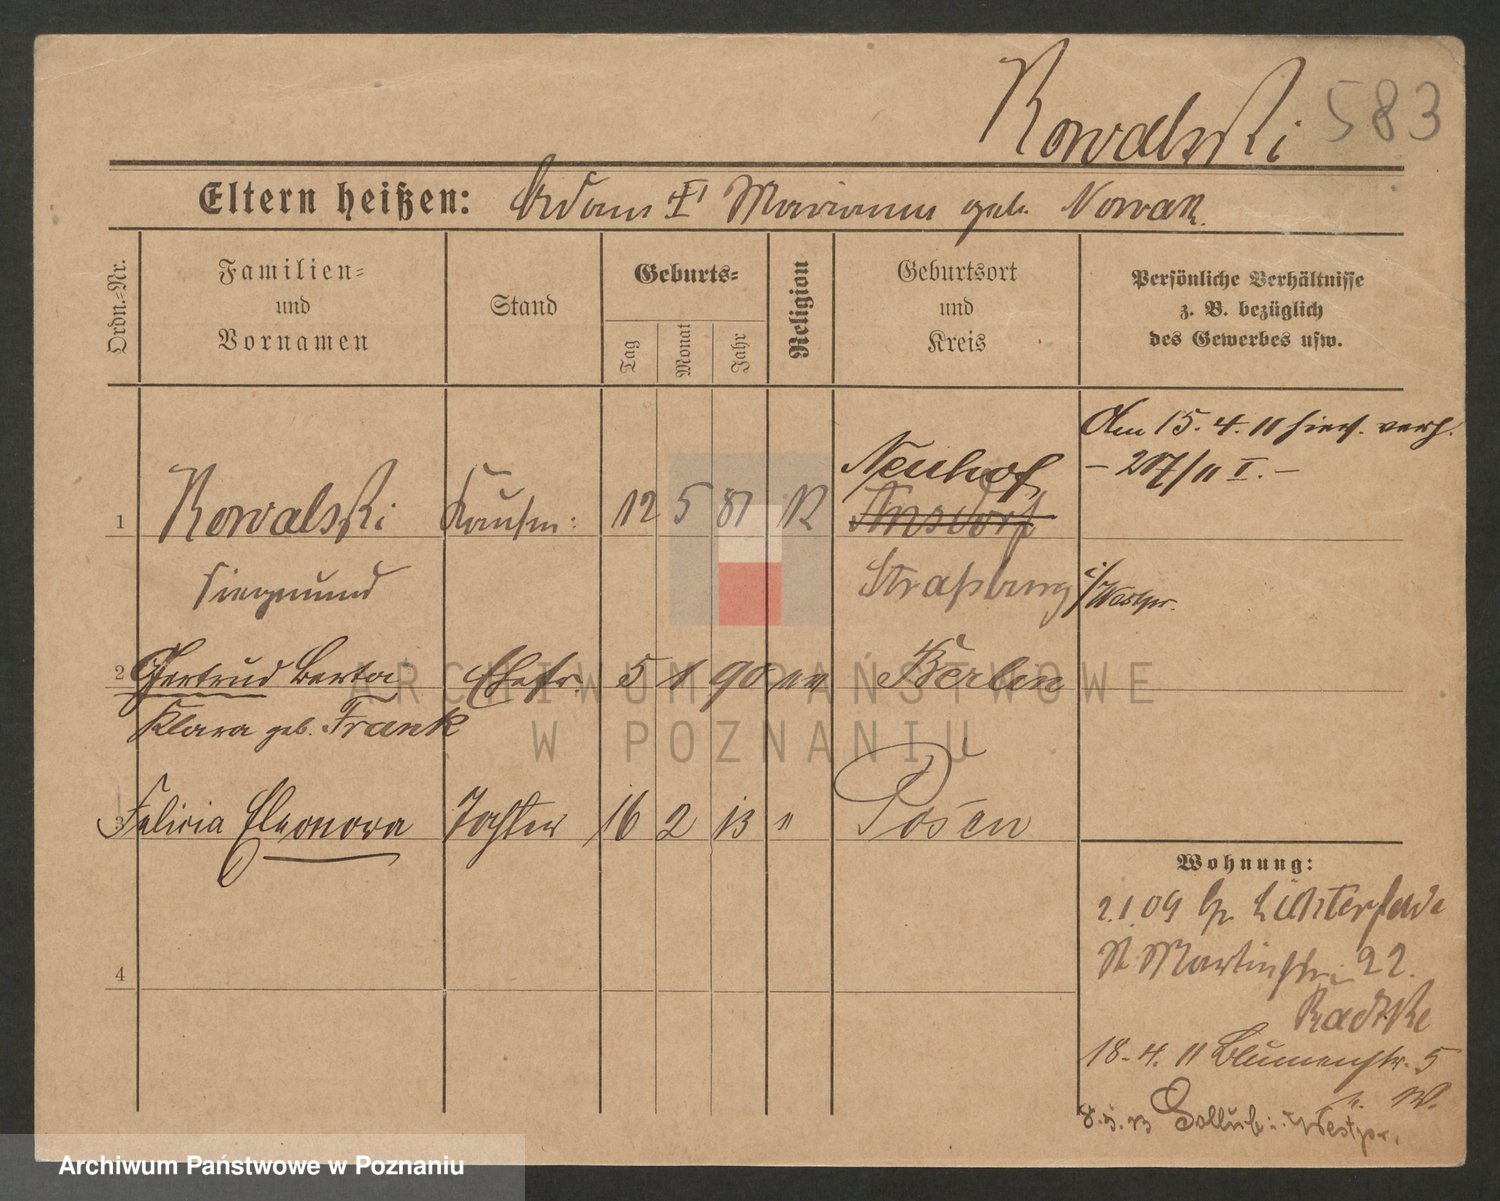 Kowalski 583
Eltern heißen: Adam Marianna geb. Nowak.
Ordn.-Nr.
Familien-
und
Vornamen
Stand
Geburts-
Tag
Monat
Jahr
Religion
Geburtsort
und
Kreis
Persönliche Verhältnisse
z. B. bezüglich
des Gewerbes usw.
Am 15. 4. 11 hier. verh.
- 217/11 I. -
Neuhof
1 Kowalski Kaufm: 12 5 81 K Amsdorf
Siegmund Straßburg i/Westpr.
2 Gertrud Berta Ehefr. 5 1 90 ev Berlin
Klara geb. Frank
3 Felicia Eleonora Tochter 16 2 13 " Posen
4
Wohnung:
2.1 09 Lichterfelde
St. Martinstr. 22.
Radtke
18. 4. 11 Blumenstr. 5
W.
8.5.13 Gollub i. Westpr.
ARCHIWUM PAŃSTWOWE
W POZNANIU
Archiwum Państwowe w Poznaniu